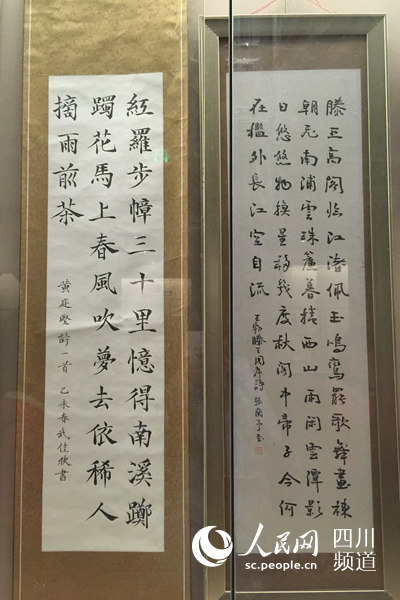 紅羅步幛三十里憶得南溪躑
躅花馬上春風吹夢去依稀人
摘雨前茶
黃庭堅詩一首 乙未春武佳欣書
滕王高閣臨江渚佩玉鳴鸞罷歌舞畫棟
朝飛南浦雲珠簾暮捲西山雨閑雲潭影
日悠悠物換星移幾度秋閣中帝子今何
在檻外長江空自流
王勃滕王閣序詩
人民网 四川
频道
sc.people.cn